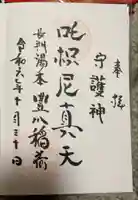 奉拝
守護神
吒枳尼真天
長門湯本豊川稲荷
令和六年十月三十日